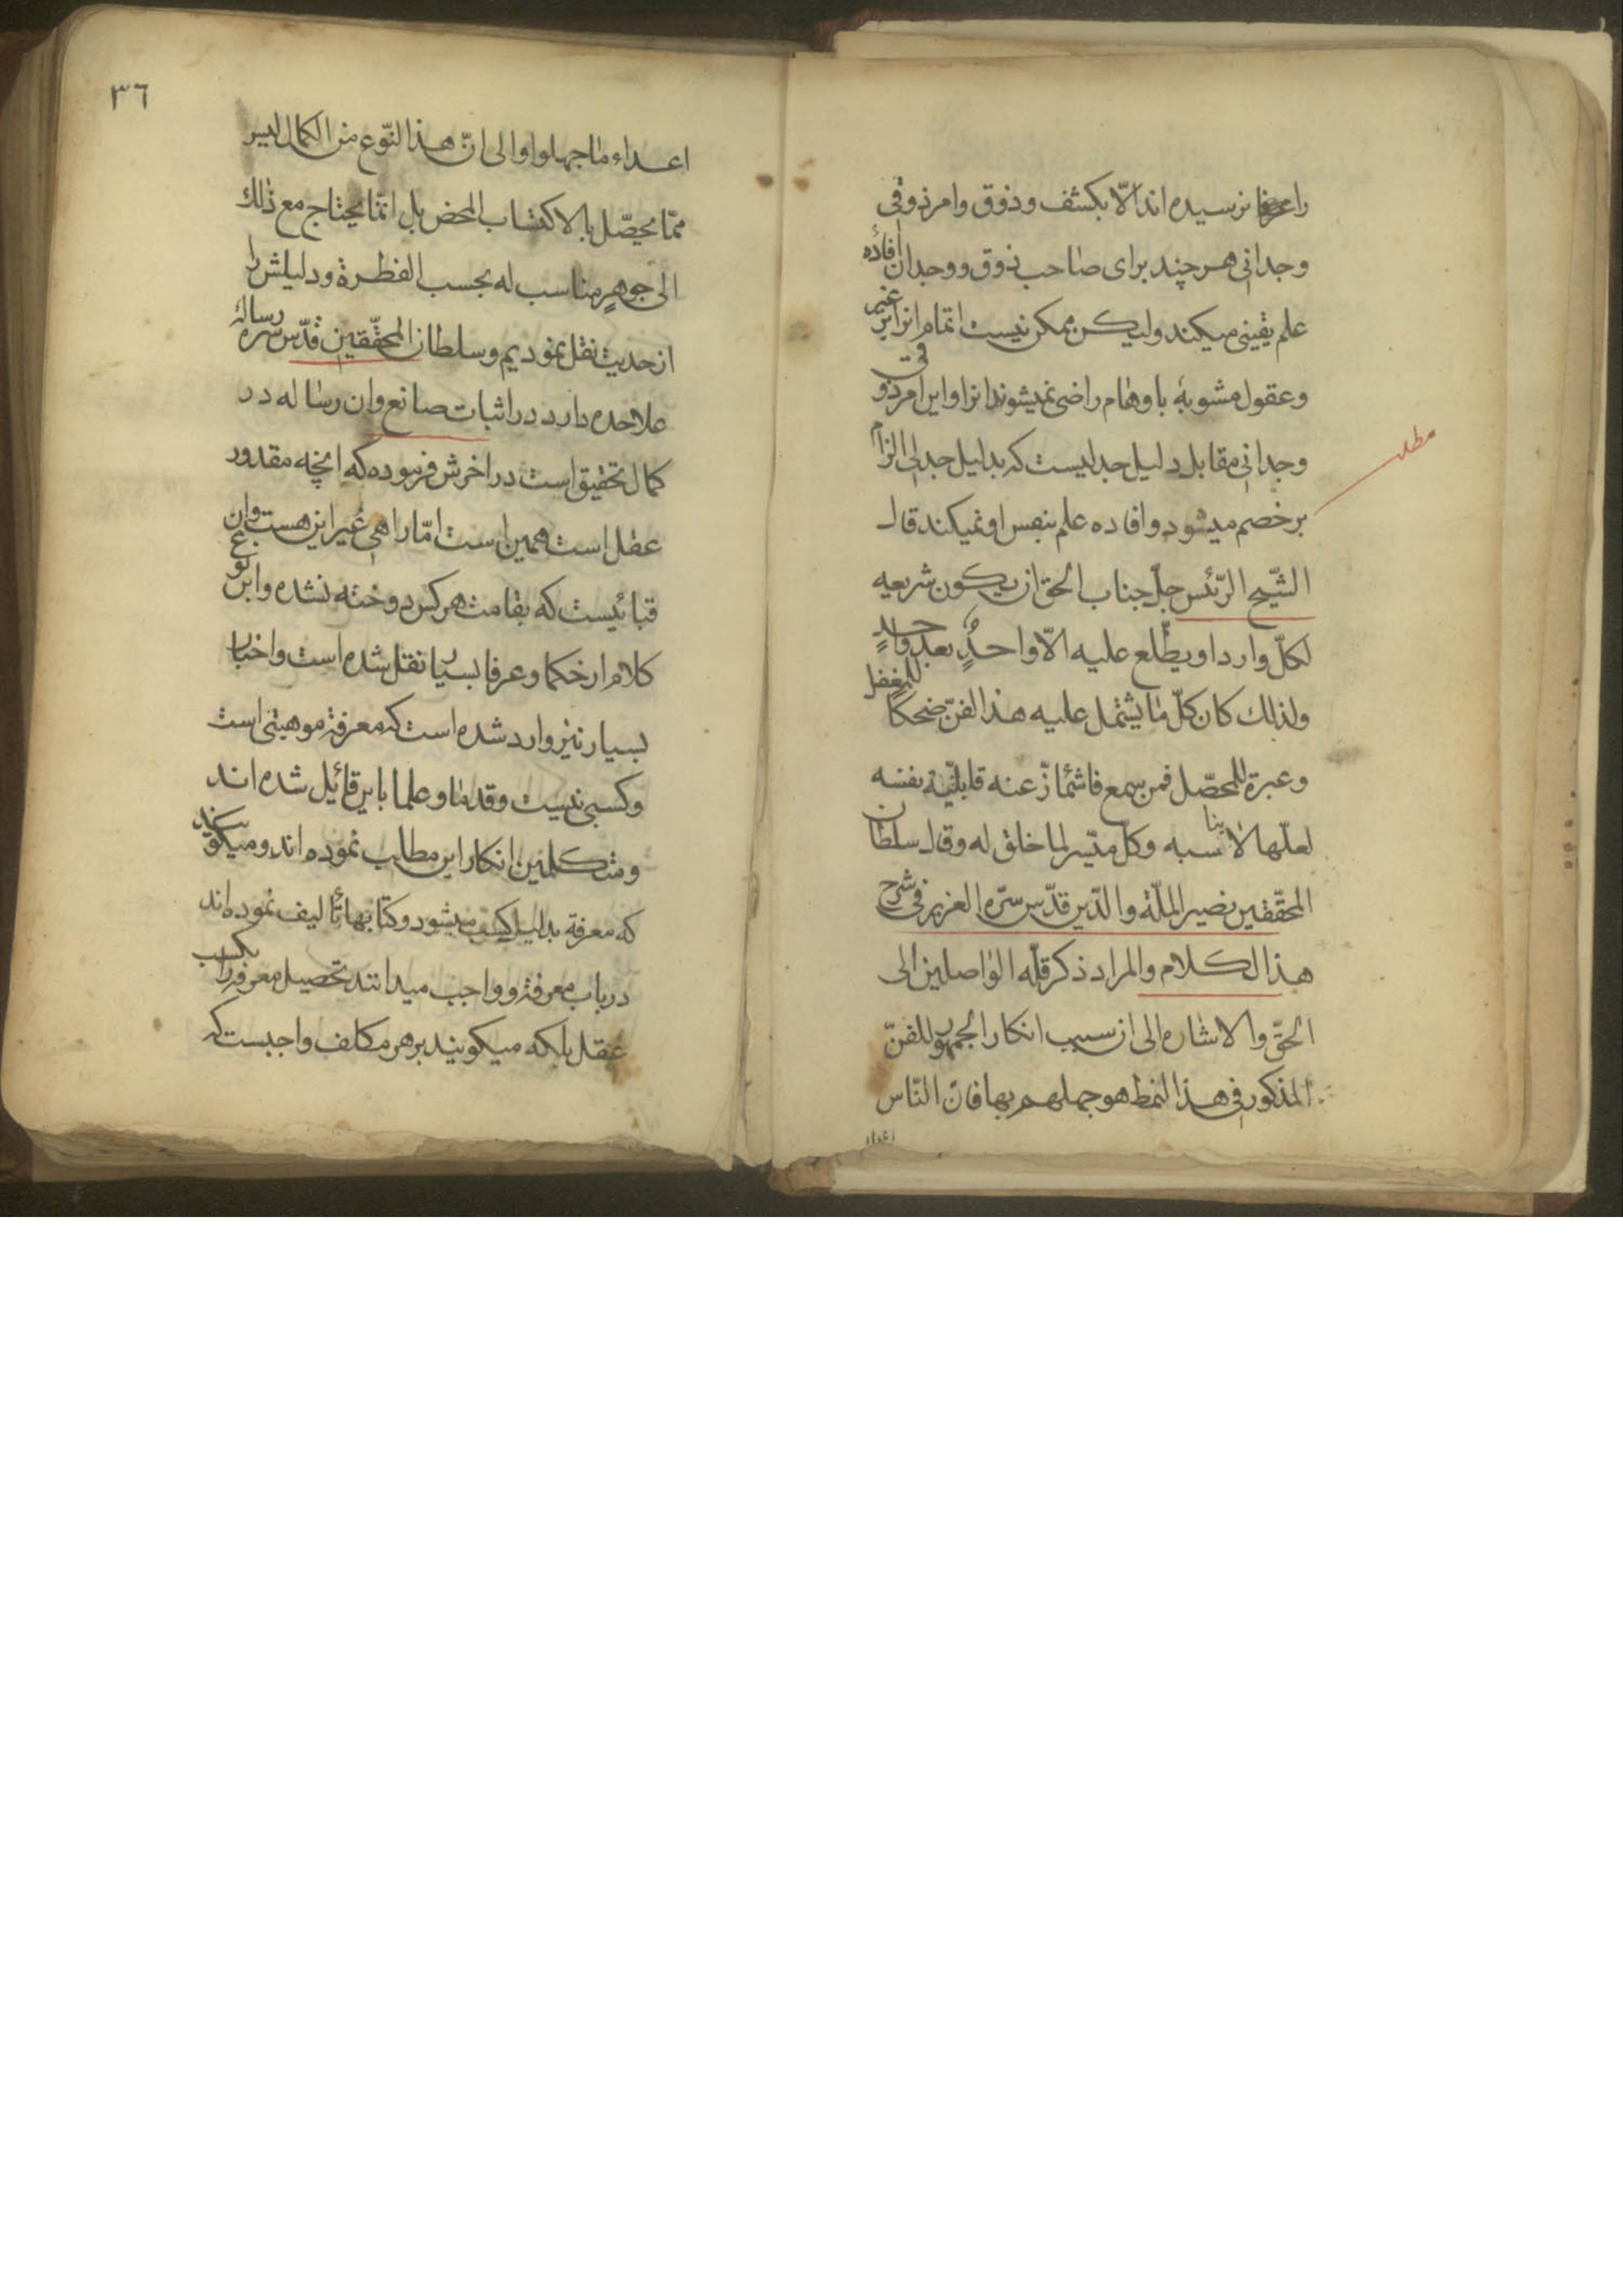 را عرفا نرسیده اند الّا بکشف و ذوق و امر ذوقی
وجدانی هر چند برای صاحب ذوق و وجدان افادهٔ
علم یقینی میکند ولیکن ممکن نیست اتمام انرا بر غیر
وعقول مشوبهٔ باوهام راضی نمیشوند انرا واین امر ذوقی
وجدانی مقابل دلیل جدلیست که بدلیل جدلی الزام
بر خصم میشود وافاده علم بنفس او نمیکند قال
مطلب
الشّیخ الرّئیس جلّ جناب الحق ان یکون شریعه
لکلّ وارد او یطّلع علیه الّا واحدٌ بعد واحدٍ
ولذلك كان كلّ ما یشتمل علیه هذا الفنّ ضحكة للمغفل
وعبرة للمحصّل فمن سمع فاشمأزّ عنه فلیتّهم نفسه
لعلّها لا یناسبه وكلّ میسّر لما خلق له وقال سلطان
المحقّقین نصیر الملّة والدّین قدّس سرّه العزیز فی شرح
هذا الکلام والمراد ذكر قلّه الواصلین الی
الحقّ والاشاره الی ان سبب انکار الجمهور للفنّ
المذکور فی هذا النمط هو جهلهم بها فان النّاس
اعداء
٣٦
اعداء ما جهلوا والی انّ هذا النّوع من الکمال لیس
ممّا یحصّل بالاکتساب المحض بل انّما یحتاج مع ذلك
الی جوهرٍ مناسب له بحسب الفطرة ودلیلش را
از حدیث نقل نمودیم وسلطان المحقّقین قدّس سره رسالهٔ
علاحده دارد در اثبات صانع وان رساله در
کمال تحقیق است در اخرش فرموده که انچه مقدور
عقل است همین است امّا راهی غیر این هست وان
قبائیست که بقامت هر کس دوخته نشده واین نوع
کلام از حکما وعرفا بسیار نقل شده است واخبار
بسیار نیز وارد شده است که معرفة موهبتی است
وکسبی نیست وقدما وعلما باین قائیل شده اند
ومتکلمین انکار این مطلب نموده اند ومیکویند
که معرفة بدلیل کسب میشود وکتابها تألیف نموده اند
درباب معرفة وواجب میدانند تحصیل معرفة را بکسب
عقل بلکه میکویند بر هر مکلف واجبست که